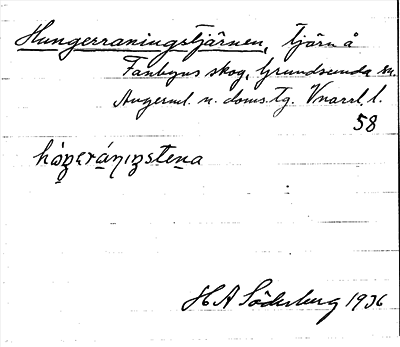 Hungerraningstjärnen, Tjärn å
Fanbyns skog, Grundsunda sn.
Ångerml. n. doms.tg. Vnorrl. l.
58
H A Söderberg 1936